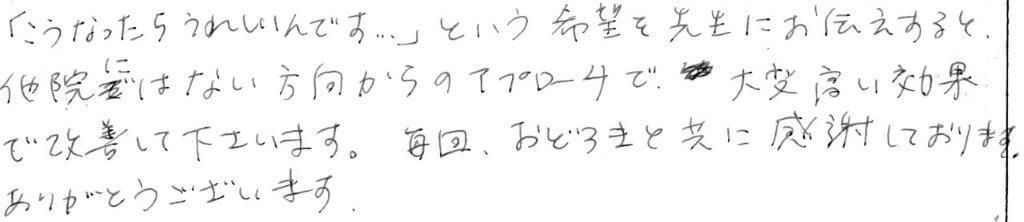 「こうなったらうれしいんです…」という希望を先生にお伝えすると、
他院にはない方向からのアプローチで 大変高い効果
で改善して下さいます。毎回、おどろきと共に感謝しております。
ありがとうございます.